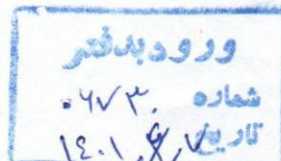 ورود بدفتر
شماره ۰۶۷۳۰
تاریخ ۱۴۰۱,۴,۷